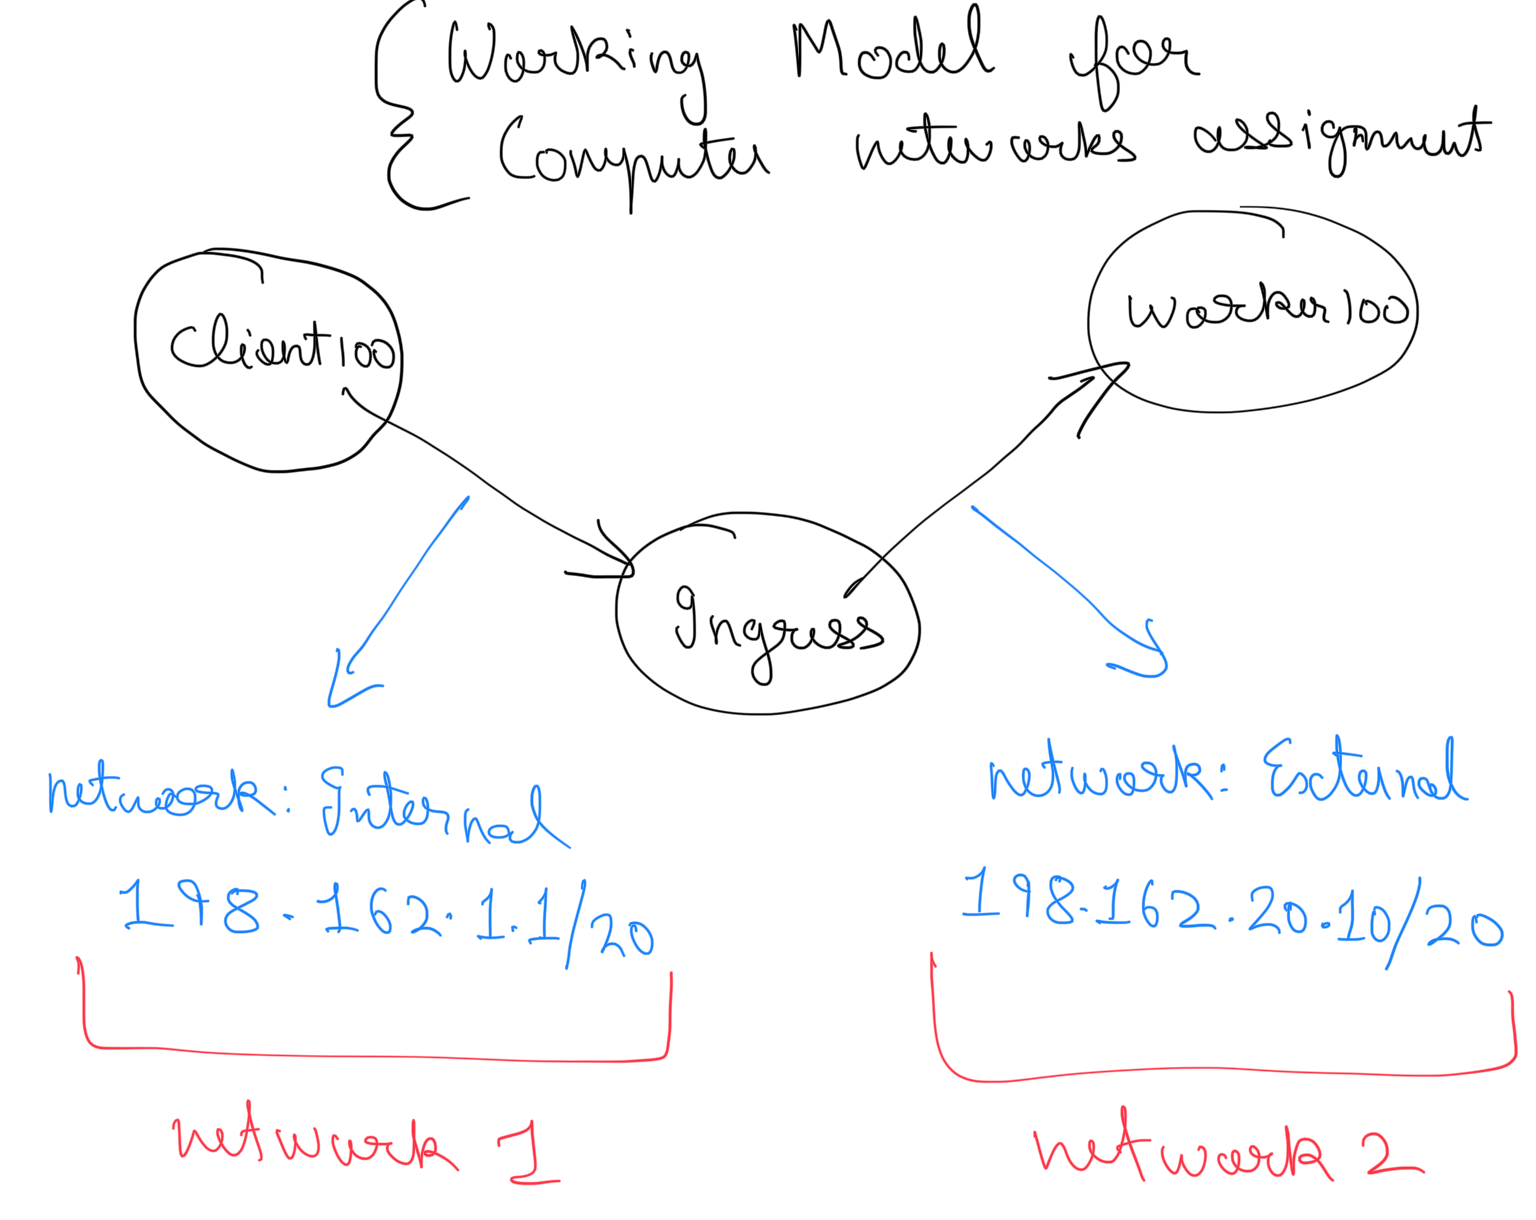 Working Model for
Computer networks assignment
Client100
Worker100
Ingress
network: Internal
198.162.1.1/20
network: External
198.162.20.10/20
network 1
network 2